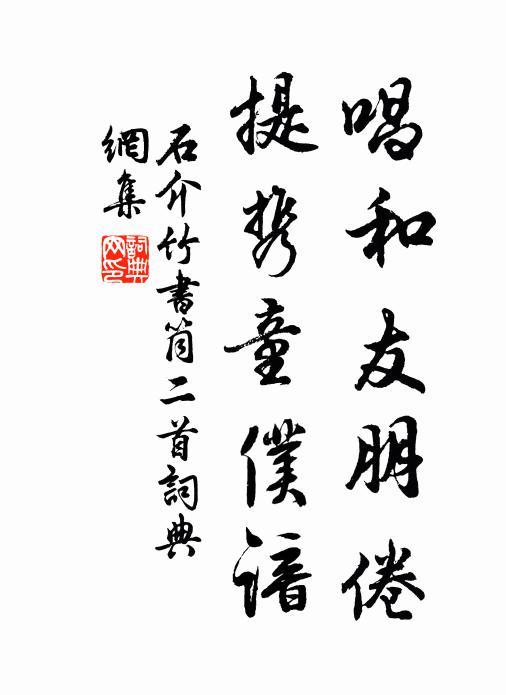 唱和友朋倦
提携童僕諳
石介竹書筒二首詞典
網集
詞典網印